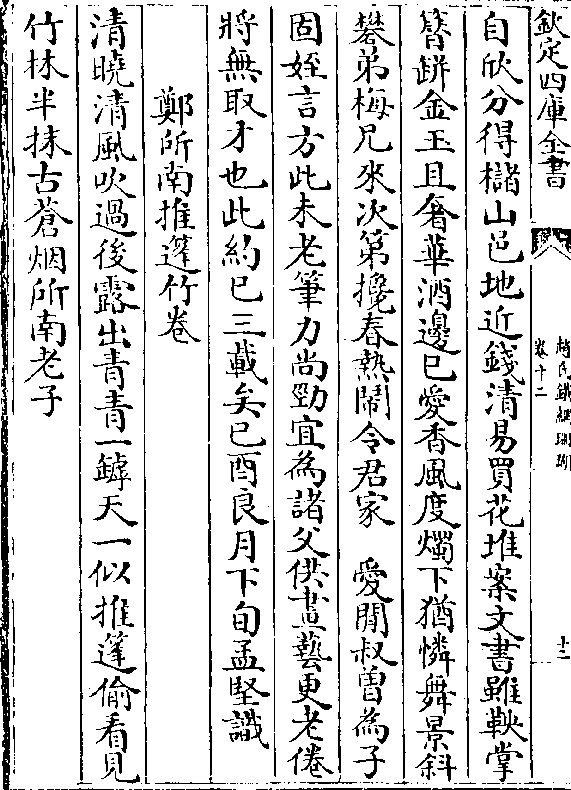 欽定四庫全書
趙氏鐵網珊瑚
卷十二
十二
自欣分得櫧山邑地近錢清易買花堆案文書雖鞅掌
簪缾金玉且奢華酒邊已愛香風度燭下猶憐舞景斜
礬弟梅兄來次第攙春熱鬧令君家　愛閒叔曽為子
固姪言方此未老筆力尚勁宜為諸父供畫藝更老倦
將無取才也此約已三載矣己酉良月下旬孟堅識
鄭所南推篷竹卷
清曉清風吹過後露出青青一罅天一似推篷偷看見
竹林半抹古蒼烟所南老子